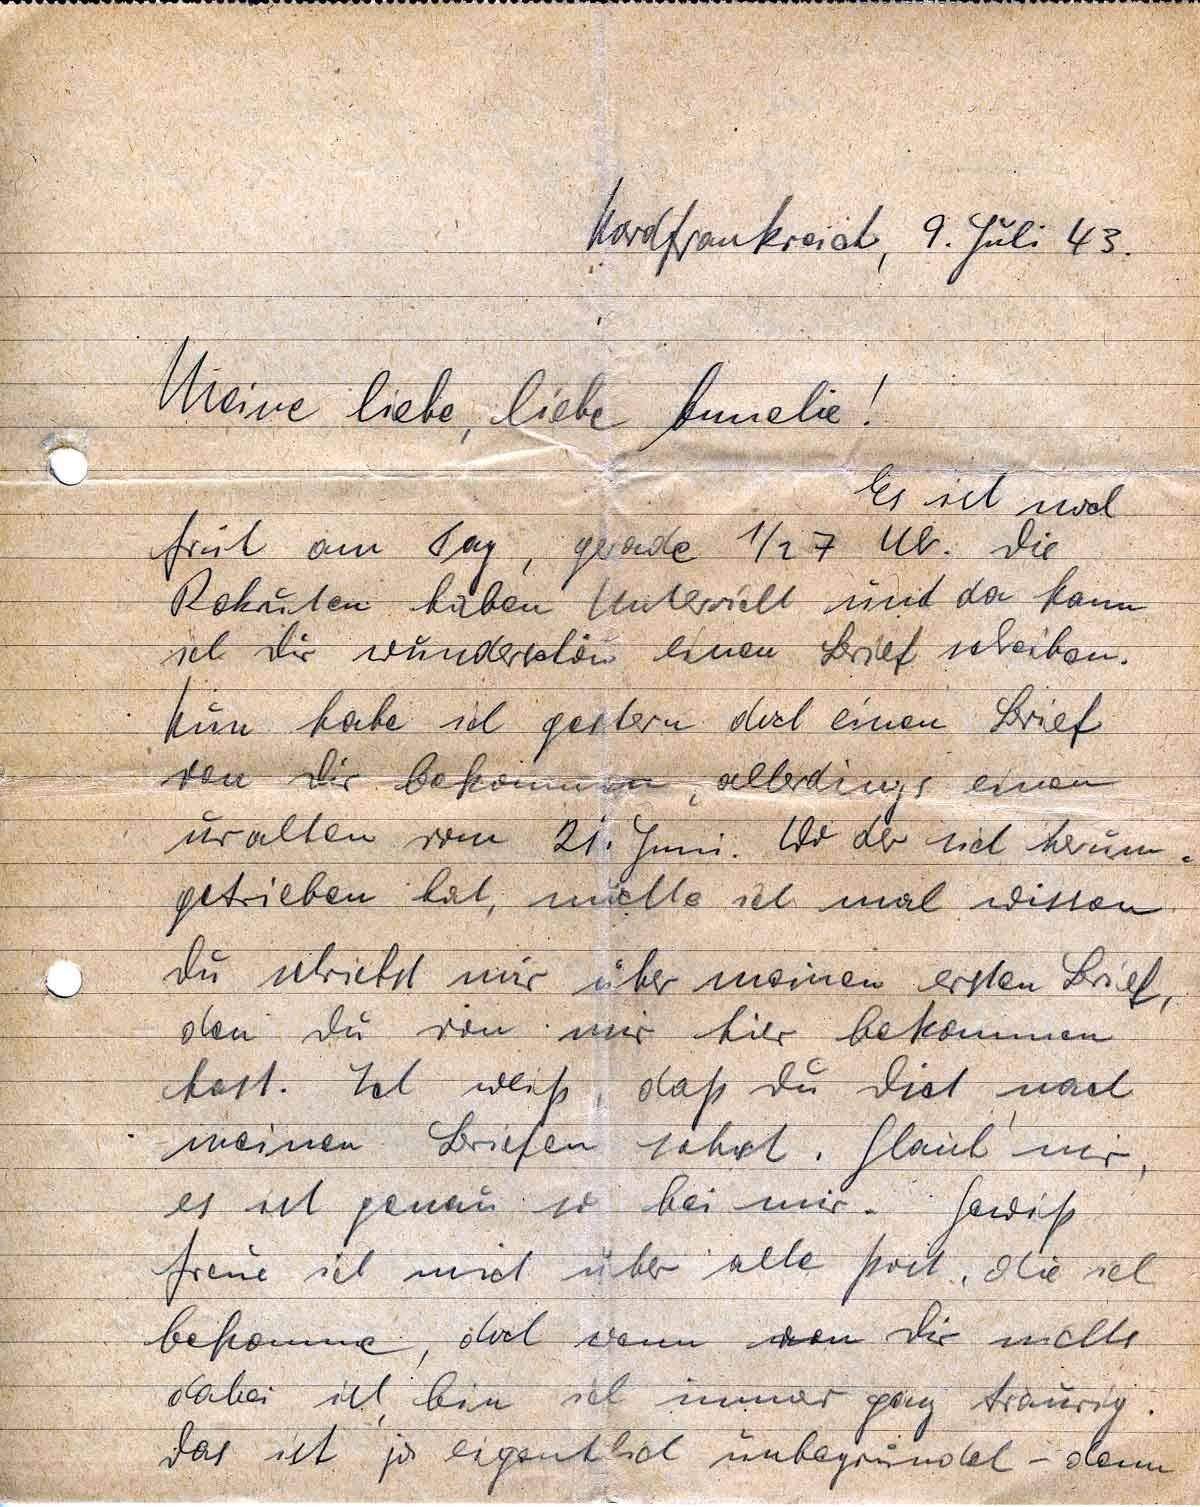 Nordfrankreich, 9. Juli 43.
Meine liebe, liebe Annelie!
Es ist noch
früh am Tag, gerade 1/2 7 Uhr. Die
Rekruten haben Unterricht und da kann
ich Dir wunderschön einen Brief schreiben.
Nun habe ich gestern doch einen Brief
von Dir bekommen, allerdings einen
uralten vom 21. Juni. Wo der sich herum-
getrieben hat, möchte ich mal wissen
Du schriebst mir über meinen ersten Brief,
den Du von mir hier bekommen
hast. Ich weiß, daß Du Dich nach
meinen Briefen sehnst. Glaub' mir,
es ist genau so bei mir. Gewiß
freue ich mich über alle Post, die ich
bekomme, doch wenn von Dir nichts
dabei ist, bin ich immer ganz traurig.
Das ist ja eigentlich unbegründet - denn